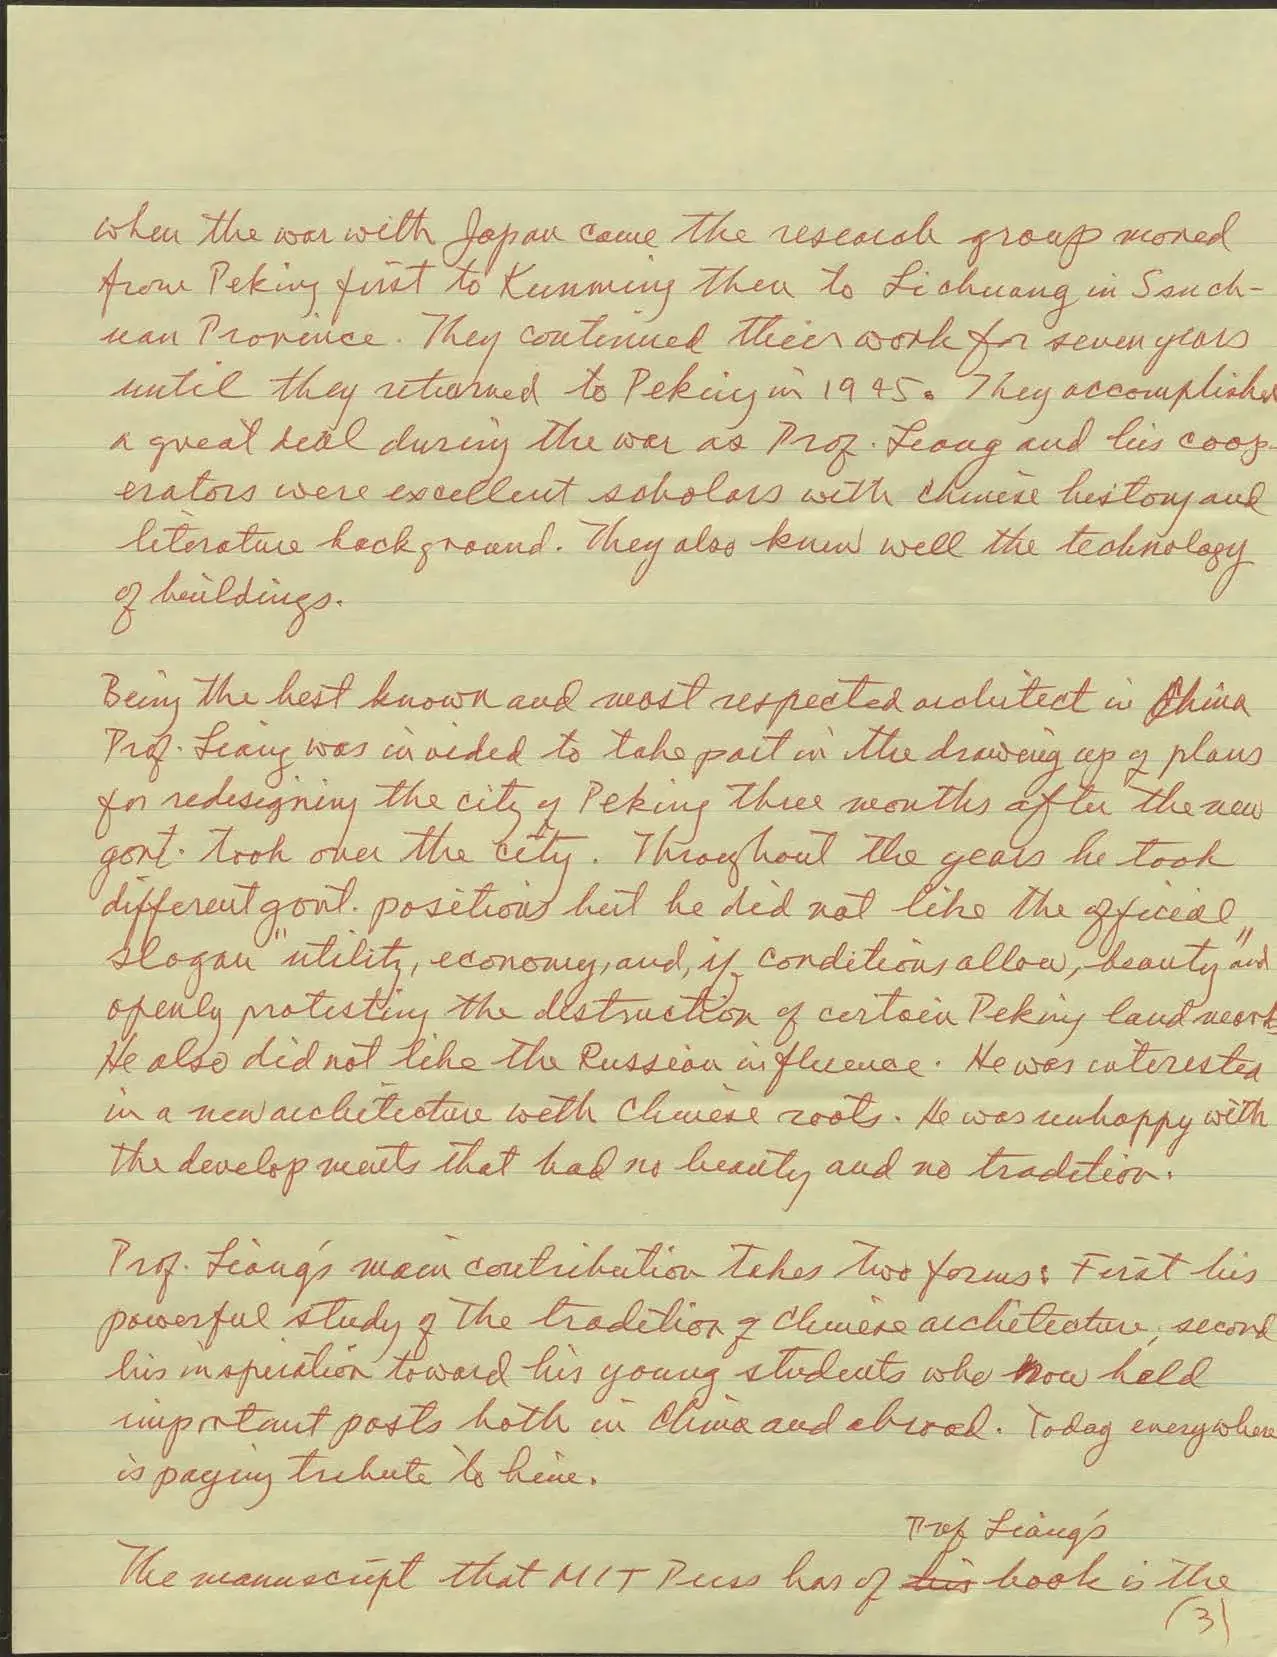 when the war with Japan came the research group moved
from Peking first to Kunming then to Lichuang in Ssuch-
uan Province. They continued their work for seven years
until they returned to Peking in 1945. They accomplished
a great deal during the war as Prof. Liang and his coop-
erators were excellent scholars with Chinese history and
literature background. They also knew well the technology
of buildings.
Being the best known and most respected architect in China
Prof. Liang was invided to take part in the drawing up of plans
for redesigning the city of Peking three months after the new
govt. took over the city. Throughout the years he took
different govt. positions but he did not like the official
slogan "utility, economy, and, if conditions allow, beauty" and
openly protesting the destruction of certain Peking landmarks
He also did not like the Russian influence. He was interested
in a new architecture with Chinese roots. He was unhappy with
the developments that had no beauty and no tradition.
Prof. Liang's main contribution takes two forms: First his
powerful study of the tradition of Chinese architecture, second
his inspiration toward his young students who now hold
important posts both in China and abroad. Today everywhere
is paying tribute to him.
Prof Liang's
The manuscript that MIT Press has of his book is the
(3)